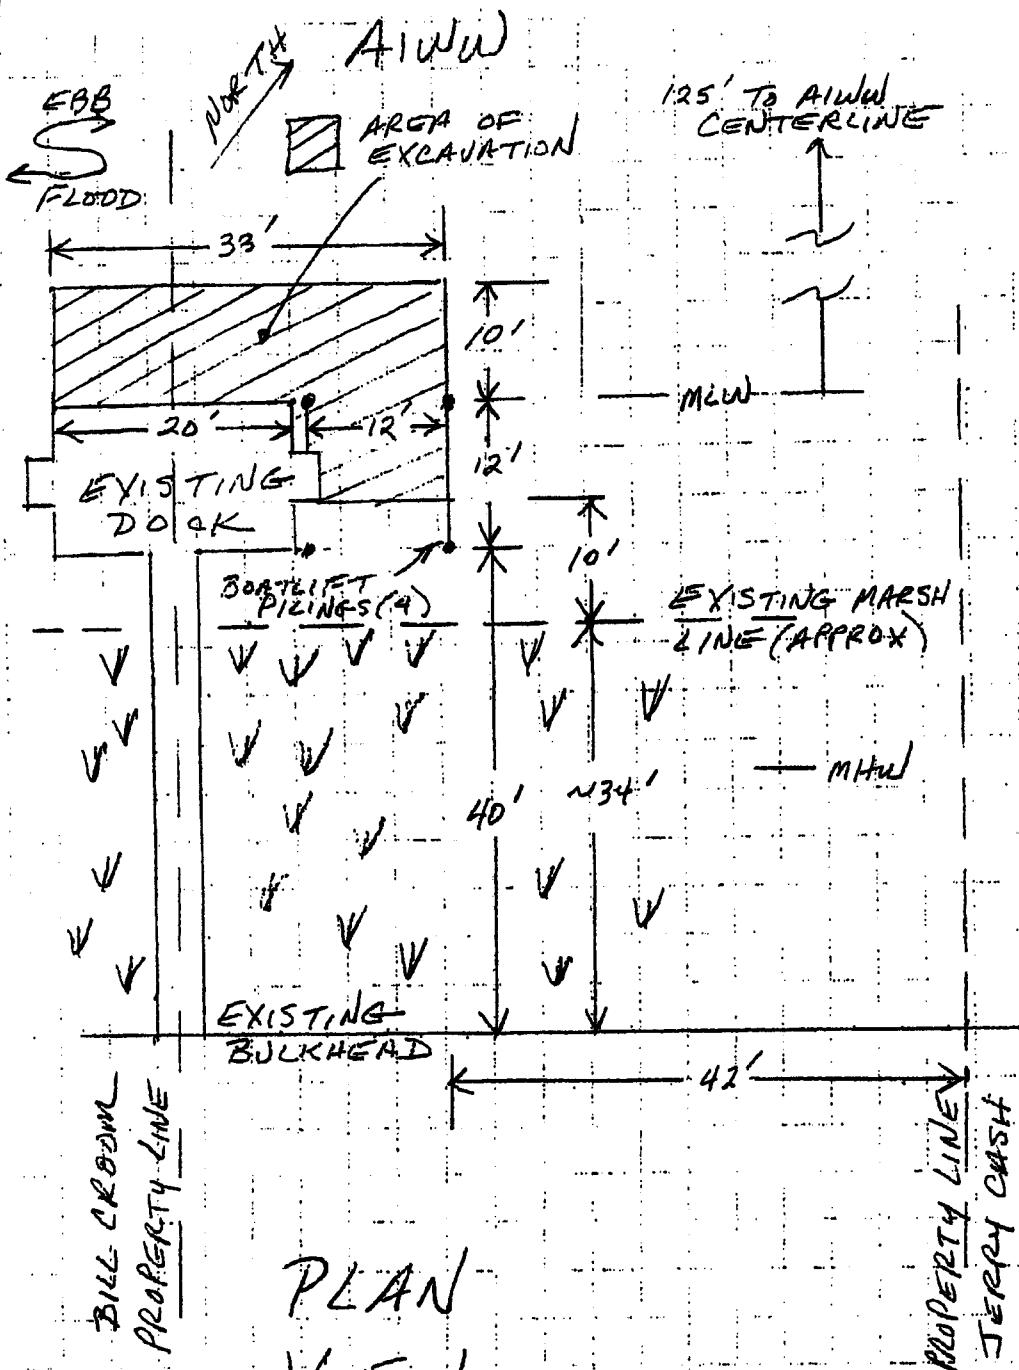 AIWW
NORTH
EBB
FLOOD
AREA OF
EXCAVATION
125' TO AIWW
CENTERLINE
33'
10'
MLW
20'
12'
12'
EXISTING
DOCK
10'
BOATLIFT
PILINGS (4)
EXISTING MARSH
LINE (APPROX)
MHW
40'
~34'
EXISTING
BULKHEAD
42'
BILL CROOM
PROPERTY LINE
PROPERTY LINE
JERRY CASH
PLAN